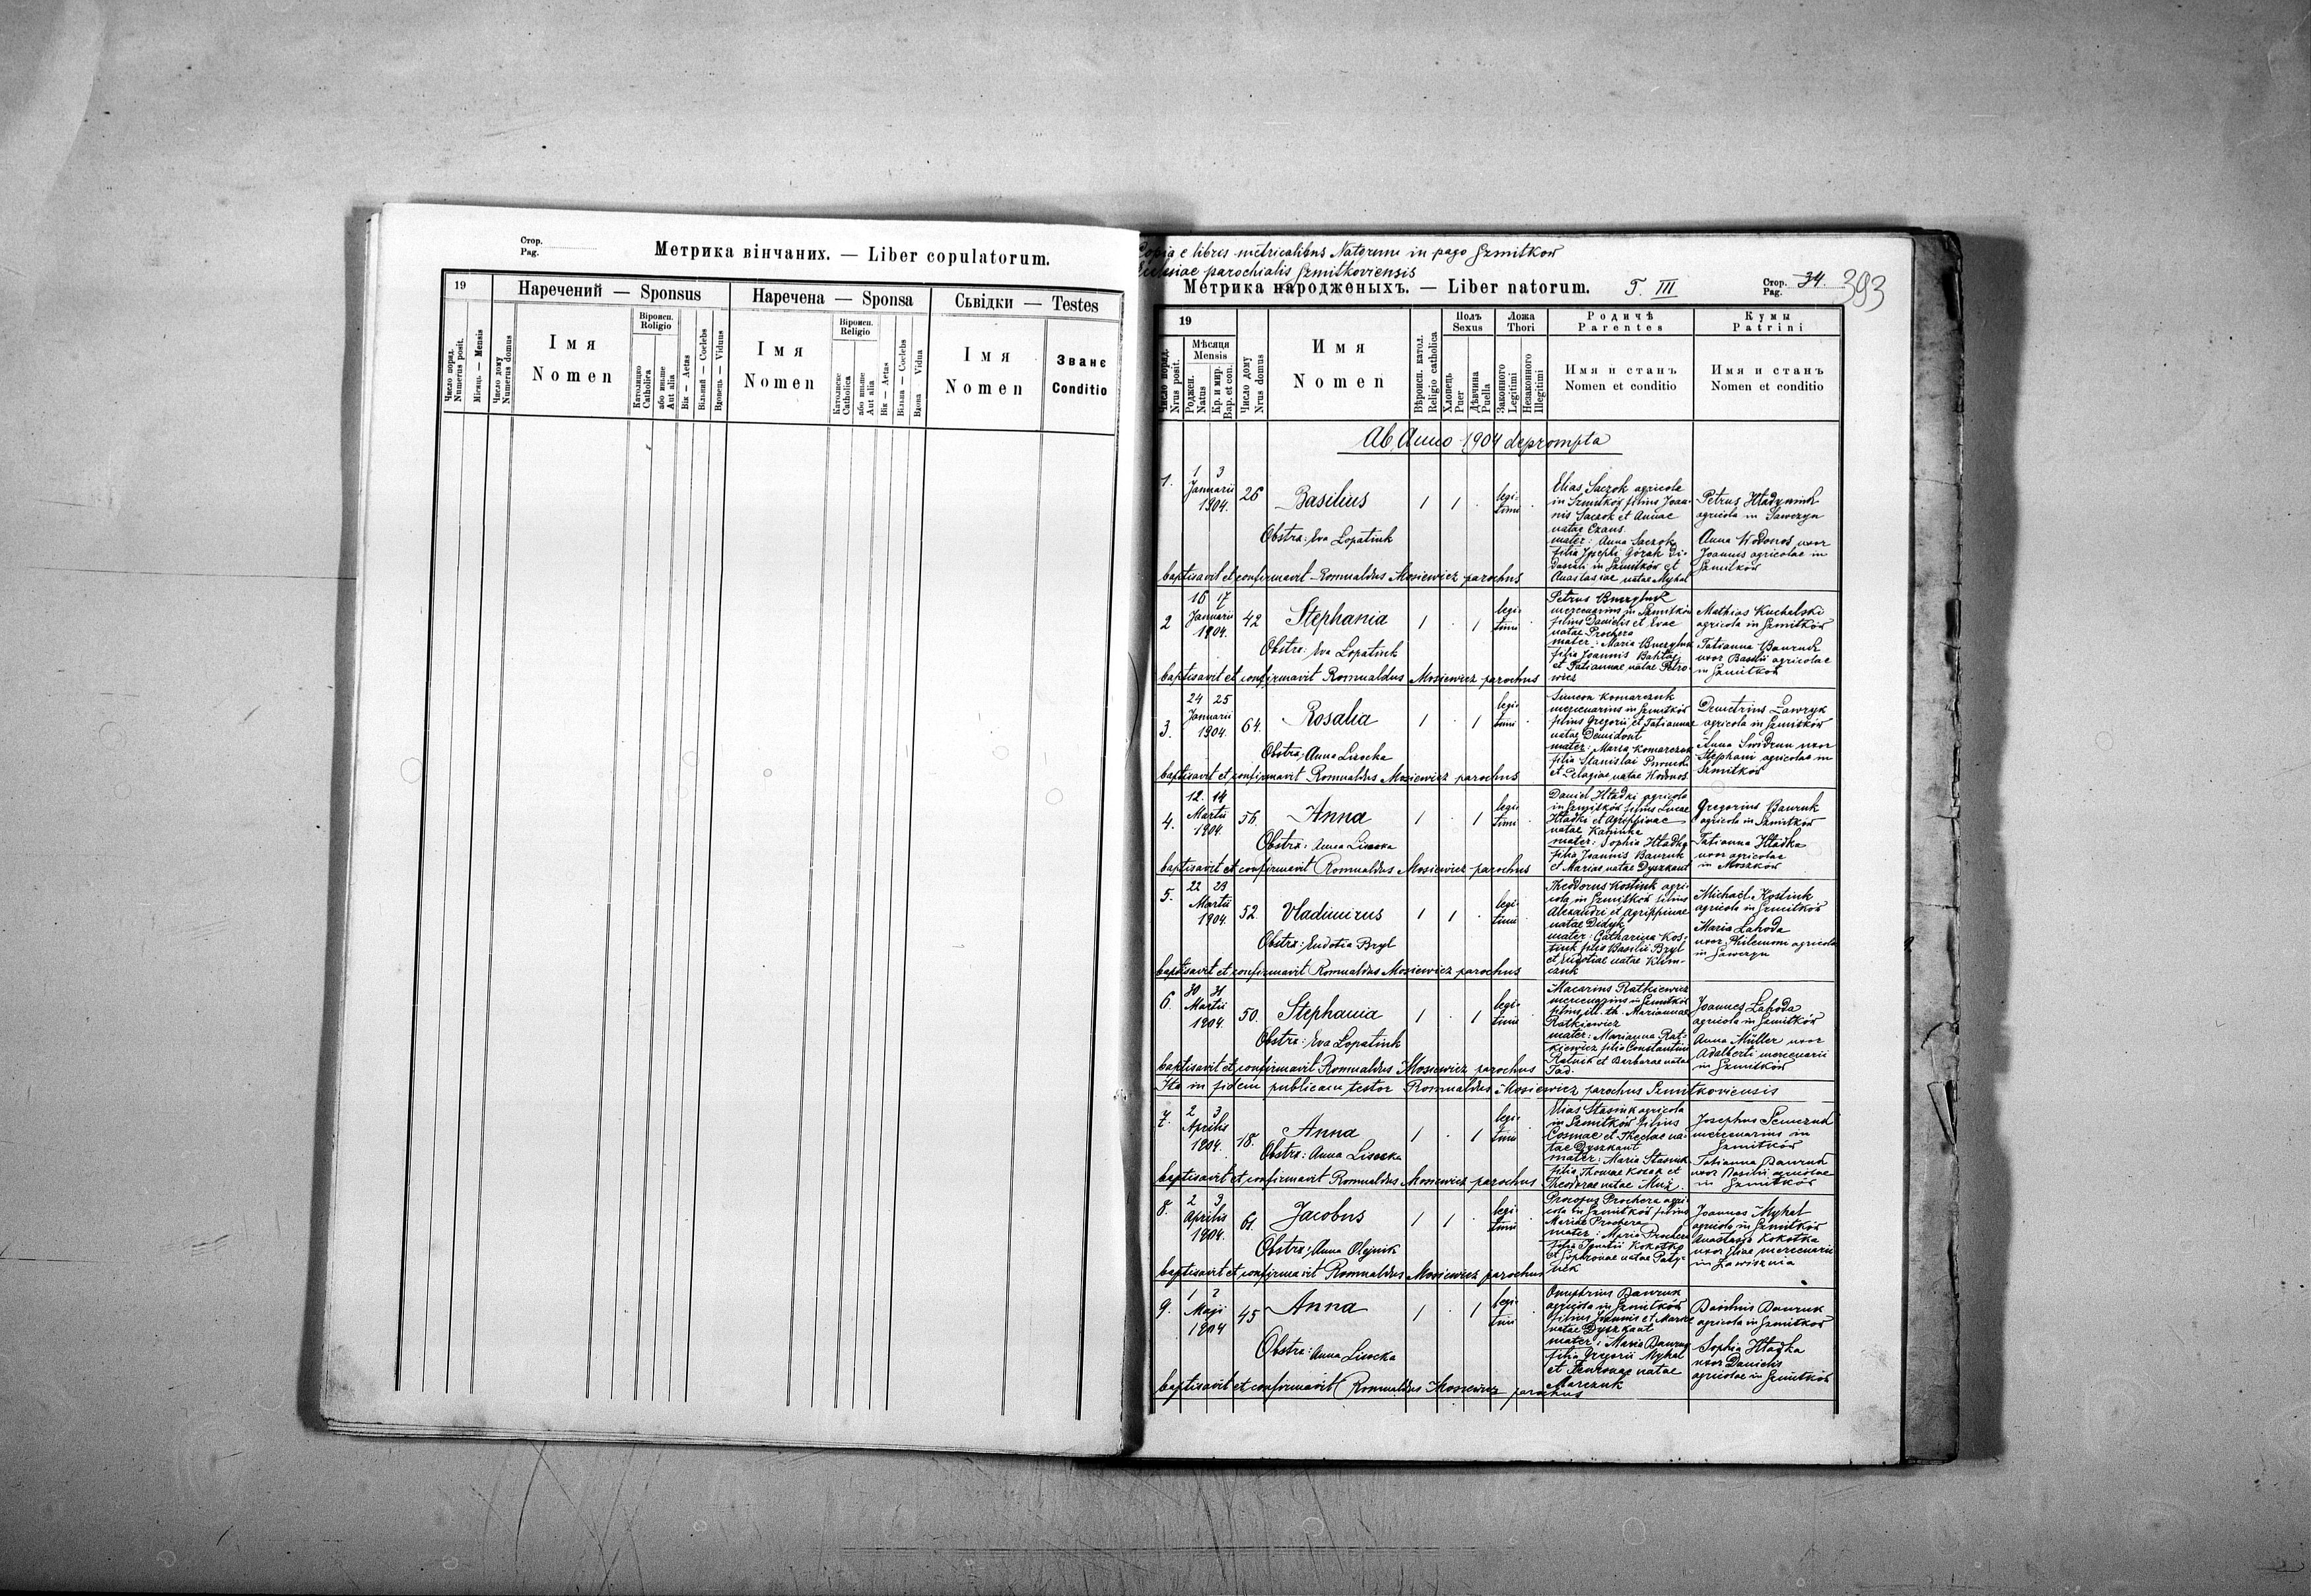 Стор.
Pag.
Метрика вінчаних. — Liber copulatorum.
19
Наречений — Sponsus
Наречена — Sponsa
Сьвідки — Testes
Число поряд.
Numerus posit.
Місяць — Mensis
Число дому
Numerus domus
Імя
Nomen
Віроисп.
Religio
Католицке
Catholica
або иньше
Aut alia
Вік — Aetas
Вільний — Coelebs
Вдовець — Viduus
Імя
Nomen
Віроисп.
Religio
Католицке
Catholica
або иньше
Aut alia
Вік — Aetas
Вільна — Coelebs
Вдова Vidua
Імя
Nomen
Званє
Conditio
Copia e libris metricalibus Natorum in pago Szmitków
Ecclesiae parochialis Szmitkoviensis
Метрика народженыхъ. — Liber natorum. T. III
Стор.
Pag. 34.
393
19
Число поряд.
Nrus posit.
Мѣсяця
Mensis
Роджен.
Natus
Кр. и мир.
Bap. et con.
Число дому
Nrus domus
Имя
Nomen
Вѣроисп. катол.
Religio catholica
Полъ
Sexus
Хлопець
Puer
Дѣвчина
Puella
Ложа
Thori
Законного
Legitimi
Незаконного
Illegitimi
Родичѣ
Parentes
Имя и станъ
Nomen et conditio
Кумы
Patrini
Имя и станъ
Nomen et conditio
Ab Anno 1904 deprompta
1. 1 3 Januarii 1904. 26 Basilius 1 1 . legitimi .
Obstra: Eva Lopatiuk
Elias Saczok agricola
in Szmitków filius Joan-
nis Saczok et Annae
natae
mater: Anna Saczok
filia Josephi Górak
in Szmitków et
Anastasiae natae Myhal
Petrus
agricola in Sawczyn
Anna Wodonos uxor
Joannis agricolae in
Szmitków
baptisavit et confirmavit Romualdus Mosiewicz parochus
2 16 17 Januarii 1904. 42 Stephania 1 . 1 legitimi .
Obstra: Eva Lopatiuk
Petrus
mercenarius in Szmitków
filius Danielis et Evae
natae Prochera
mater: Maria
filia Joannis
et Tatiannae natae Petro-
wicz
Mathias Kuchalski
agricola in Szmitków
Tatianna Bauruk
uxor Basilii agricolae
in Szmitków
baptisavit et confirmavit Romualdus Mosiewicz parochus
3. 24 25 Januarii 1904. 64. Rosalia 1 . 1 legitimi .
Obstra: Anna Lisocka
Simeon Komarczuk
mercenarius in Szmitków
filius Gregorii et Tatiannae
natae Demidont
mater: Maria Komarczuk
filia Stanislai
et Pelagiae natae Wodonos
Demetrius Lawryk
agricola in Szmitków
Anna uxor
Stephani agricolae in
Szmitków
baptisavit et confirmavit Romualdus Mosiewicz parochus
4. 12. 14 Martii 1904. 56. Anna 1 . 1 legitimi .
Obstra: Anna Lisocka
Daniel Hladki agricola
in Szmitków filius Lucae
Hladki et Agrippinae
natae Kalinka
mater: Sophia Hladka
filia Joannis Bauruk
et Mariae natae Dyszkant
Gregorius Bauruk
agricola in Szmitków
Tatianna Hladka
uxor agricolae
in Moszków
baptisavit et confirmavit Romualdus Mosiewicz parochus
5. 22 23 Martii 1904. 52. Vladimirus 1 1 . legitimi .
Obstra: Eudotia Bryl
Theodorus Kostiuk agri-
cola in Szmitków filius
Alexandri et Agrippinae
natae Didyk
mater: Catharina Kos-
tiuk filia Basilii Bryl
et Eudotiae natae Klim-
czuk
Michael Kostiuk
agricola in Szmitków
Maria Lahoda
uxor Philemoni agricolae
in Sawczyn
baptisavit et confirmavit Romualdus Mosiewicz parochus
6. 30 31 Martii 1904. 50. Stephania 1 . 1 legitimi .
Obstra: Eva Lopatiuk
Macarius Ratkiewicz
mercenarius in Szmitków
filius ill. th. Mariannae
Ratkiewicz
mater: Marianna Rat-
kiewicz filia Constantini
et Barbarae natae
Joannes Lahoda
agricola in Szmitków
Anna Müller uxor
Adalberti mercenarii
in Szmitków
baptisavit et confirmavit Romualdus Mosiewicz parochus
Ita in fidem publicam testor Romualdus Mosiewicz parochus Szmitkoviensis
7. 2 3 Aprilis 1904. 18. Anna 1 . 1 legitimi
Obstra: Anna Lisocka
Elias Stasiuk agricola
in Szmitków filius
Cosmae et Theclae na-
tae Dyszkant
mater: Maria Stasiuk
filia Thomae Kozak et
Theodorae natae Muż.
Josephus
mercenarius in
Szmitków
Tatianna Bauruk
uxor Basilii agricolae
in Szmitków
baptisavit et confirmavit Romualdus Mosiewicz parochus
8. 2 3 Aprilis 1904. 61. Jacobus 1 1 . legitimi
Obstra: Anna Olejnik
Procopus Prochera agri-
cola in Szmitków filius
Mariae Prochera
mater: Maria Prochera
filia Ignatii Kokotko
et natae
Joannes Myhal
agricola in Szmitków
Anastasia Kokotka
uxor Eliae mercenarii
in Zawisznia
baptisavit et confirmavit Romualdus Mosiewicz parochus
9. 1 2 Maji 1904 45 Anna 1 . 1 legitimi
Obstra: Anna Lisocka
Onuphrius Bauruk
agricola in Szmitków
filius Joannis et Mariae
natae Dyszkant
mater: Maria Bauruk
filia Gregorii Myhal
et natae
Marczuk
Bauruk
agricola in Szmitków
Sophia Hladka
uxor Danielis
agricolae in Szmitków
baptisavit et confirmavit Romualdus Mosiewicz parochus